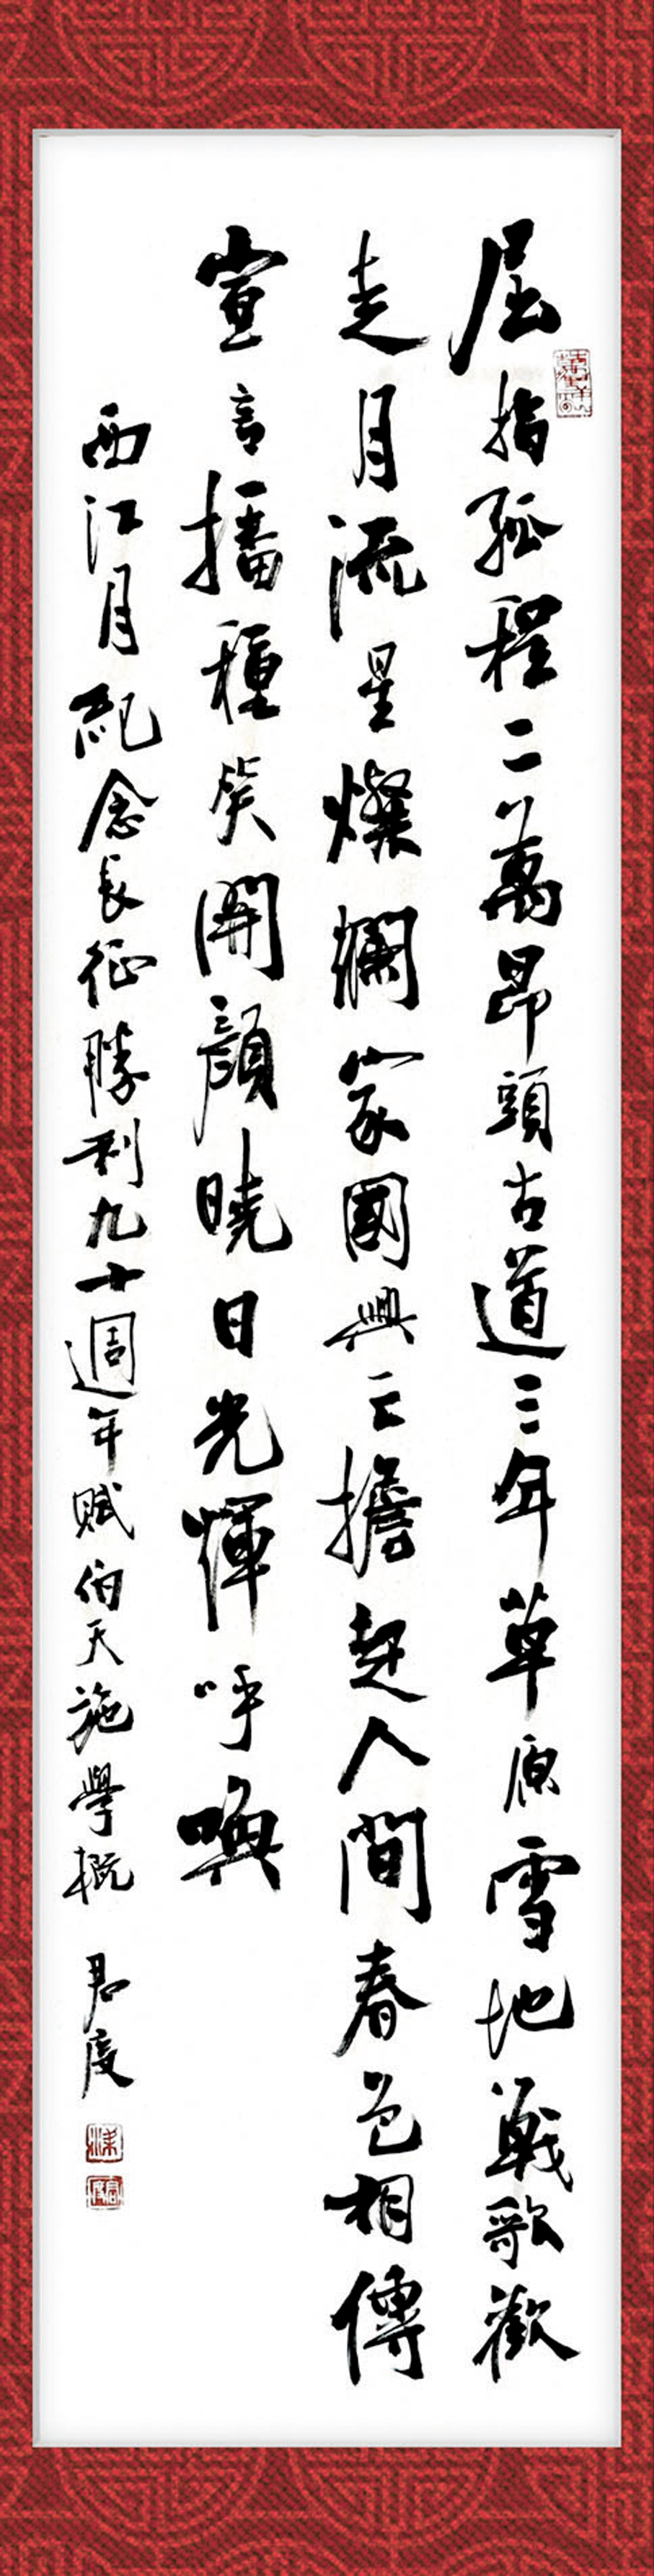 屈指孤程二萬昂頭古道三年草原雪地戰歌歡
走月流星燦爛家國興亡擔起人間春色相傳
宣言播種笑開顏曉日光輝呼喚
西江月紀念長征勝利九十週年賦伯天施學概 君度